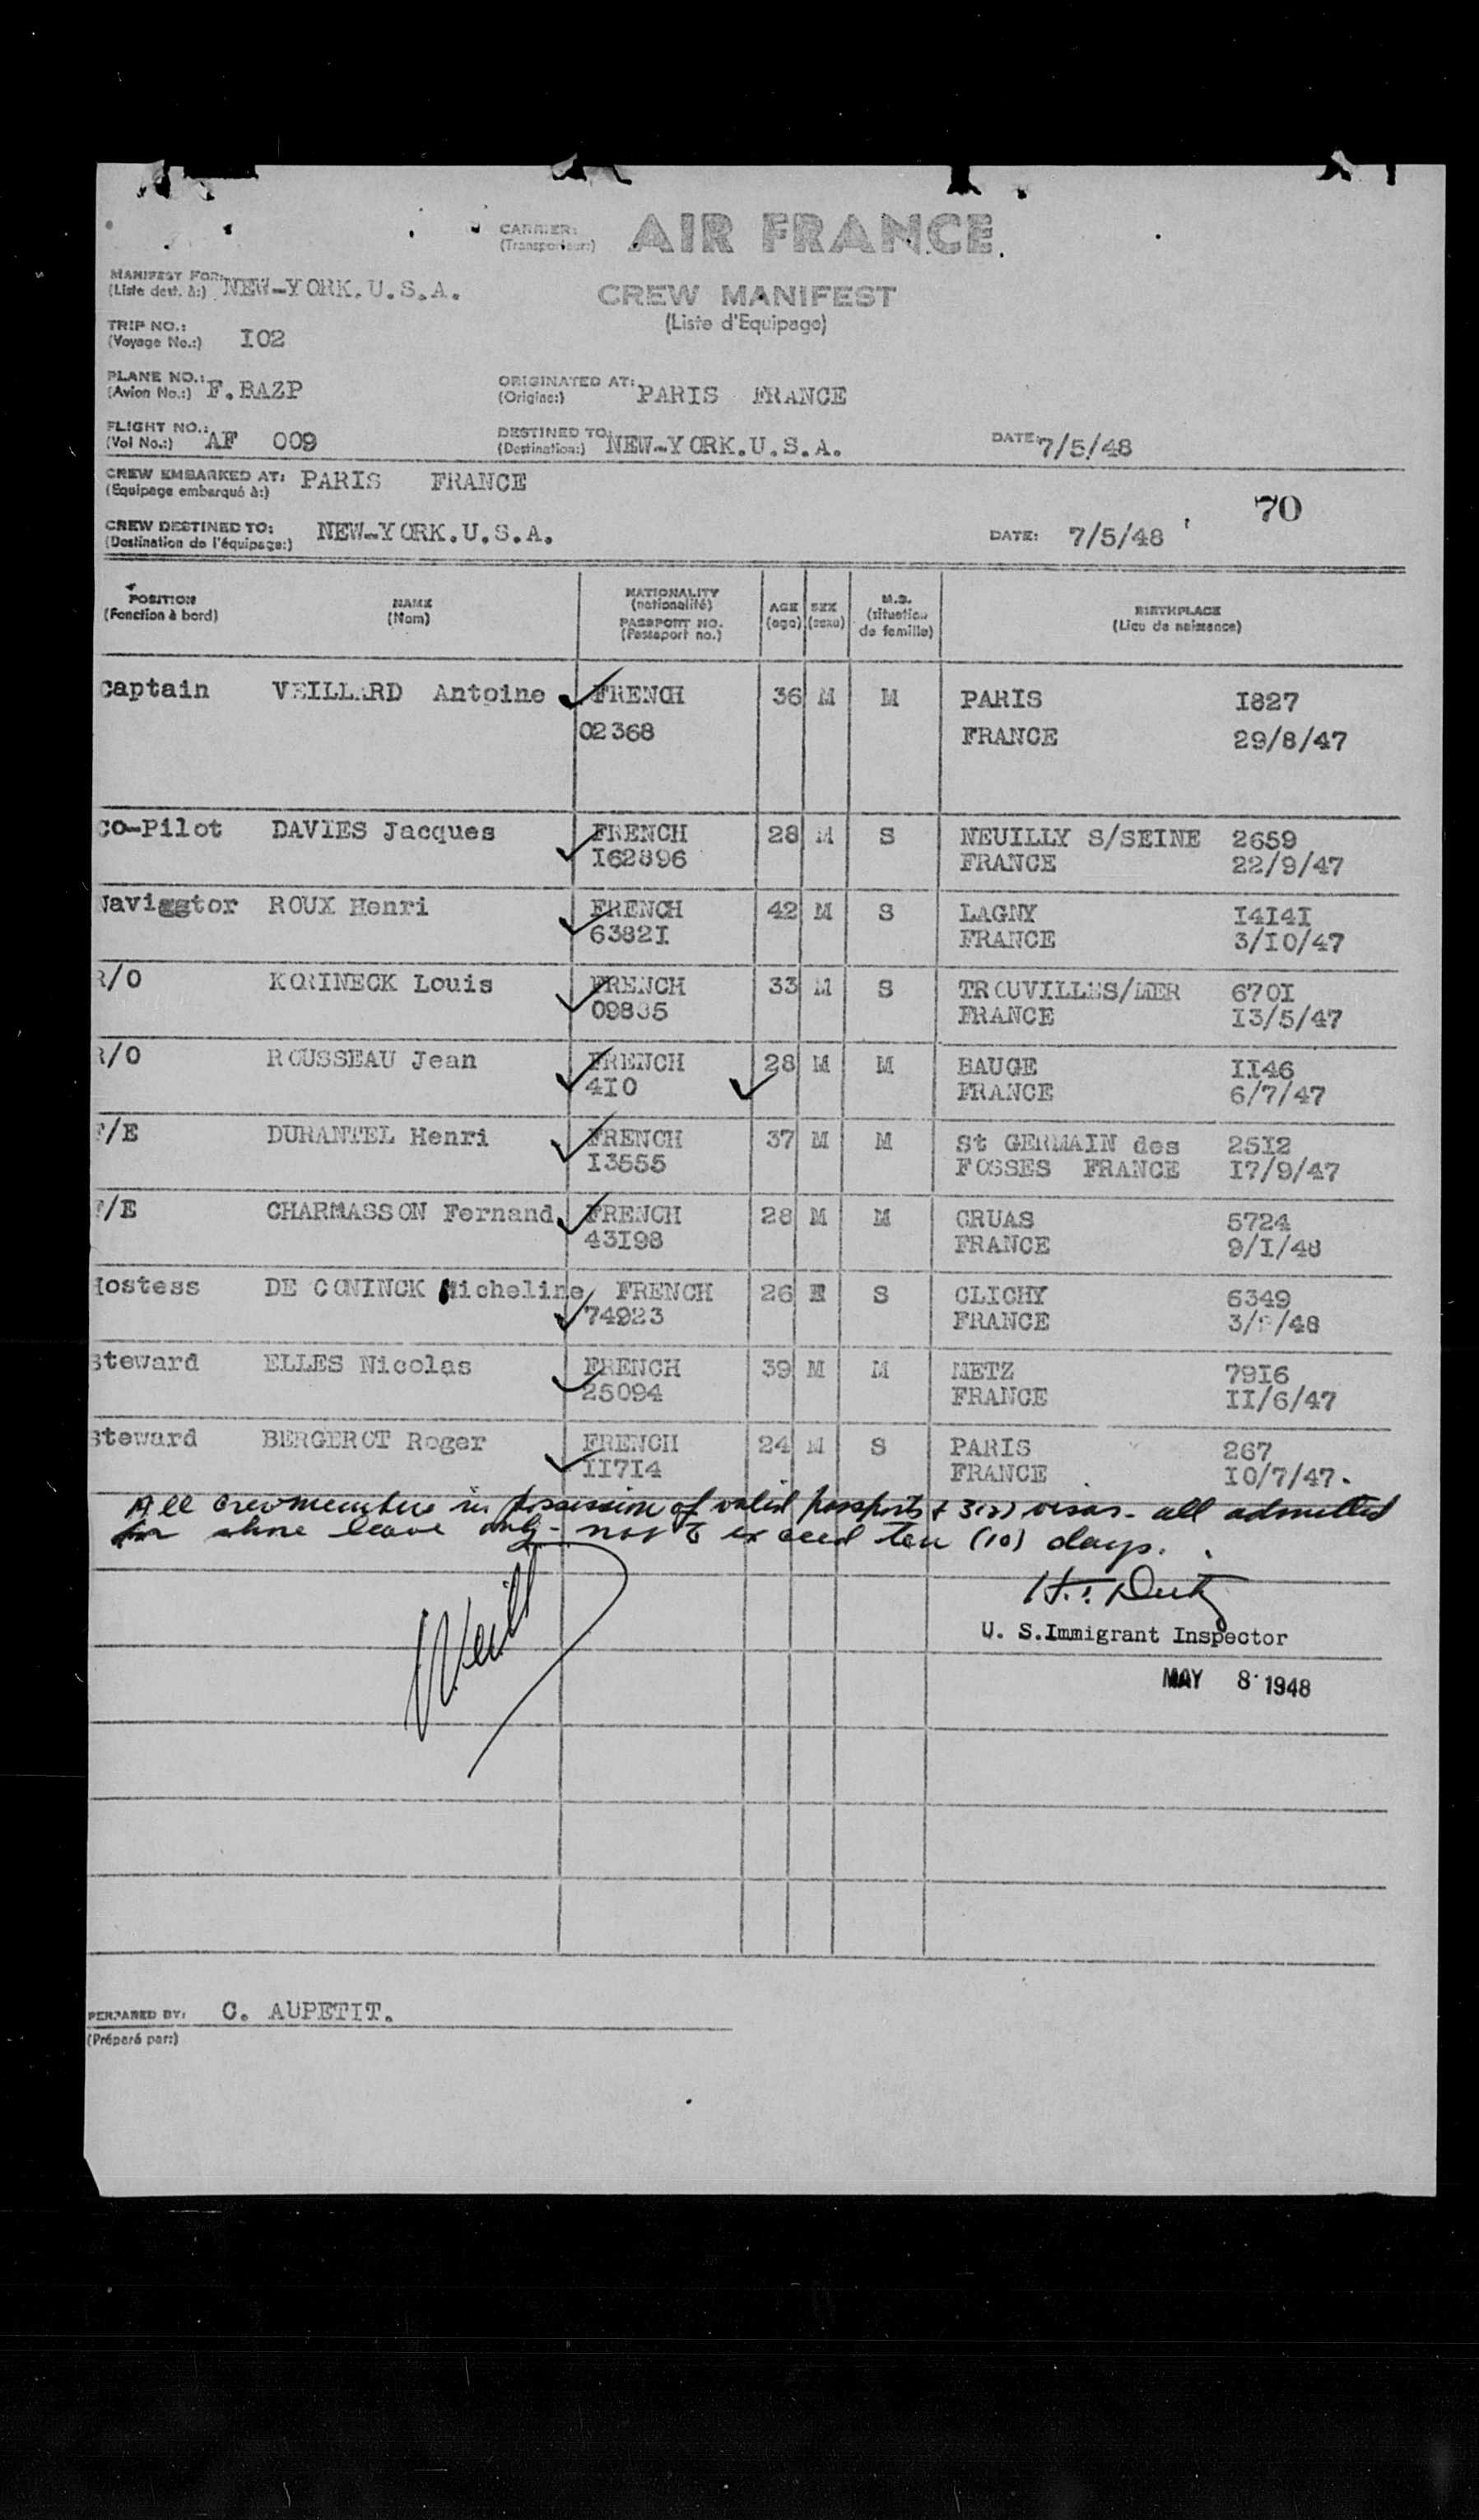 CARRIER: AIR FRANCE
(Transporteur:)
MANIFEST FOR: NEW-YORK.U.S.A.
(Liste dest. à:)
CREW MANIFEST
(Liste d'Equipage)
TRIP NO.: I02
(Voyage No.:)
PLANE NO.: F.BAZP
(Avion No.:)
ORIGINATED AT: PARIS FRANCE
(Origine:)
FLIGHT NO.: AF 009
(Vol No.:)
DESTINED TO: NEW-YORK.U.S.A.
(Destination:)
DATE: 7/5/48
CREW EMBARKED AT: PARIS FRANCE
(Equipage embarqué à:)
70
CREW DESTINED TO: NEW-YORK.U.S.A.
(Destination de l'équipage:)
DATE: 7/5/48
POSITION NAME NATIONALITY AGE SEX M.S. BIRTHPLACE
(Fonction à bord) (Nom) (nationalité) (age) (sexe) (situation (Lieu de naissance)
PASSPORT NO. de famille)
(Passeport no.)
Captain VEILLARD Antoine FRENCH 36 M M PARIS I827
02368 FRANCE 29/8/47
CO-Pilot DAVIES Jacques FRENCH 28 M S NEUILLY S/SEINE 2659
I62896 FRANCE 22/9/47
Naviggtor ROUX Henri FRENCH 42 M S LAGNY I4I4I
6382I FRANCE 3/I0/47
R/O KORINECK Louis FRENCH 33 M S TROUVILLES/MER 670I
09835 FRANCE I3/5/47
R/O ROUSSEAU Jean FRENCH 28 M M BAUGE II46
4I0 FRANCE 6/7/47
F/E DURANTEL Henri FRENCH 37 M M St GERMAIN des 25I2
I3555 FOSSES FRANCE I7/9/47
F/E CHARMASSON Fernand FRENCH 28 M M CRUAS 5724
43I98 FRANCE 9/I/48
Hostess DE CONINCK Micheline FRENCH 26 F S CLICHY 6349
74923 FRANCE
Steward ELLES Nicolas FRENCH 39 M M METZ 79I6
25094 FRANCE II/6/47
Steward BERGEROT Roger FRENCH 24 M S PARIS 267
II7I4 FRANCE I0/7/47.
All crewmembers in possession of valid passports + 3(2) visas - all admitted
for shore leave only - not to exceed ten (10) days.
U. S.Immigrant Inspector
MAY 8 1948
PERPARED BY: C. AUPETIT.
(Préparé par:)